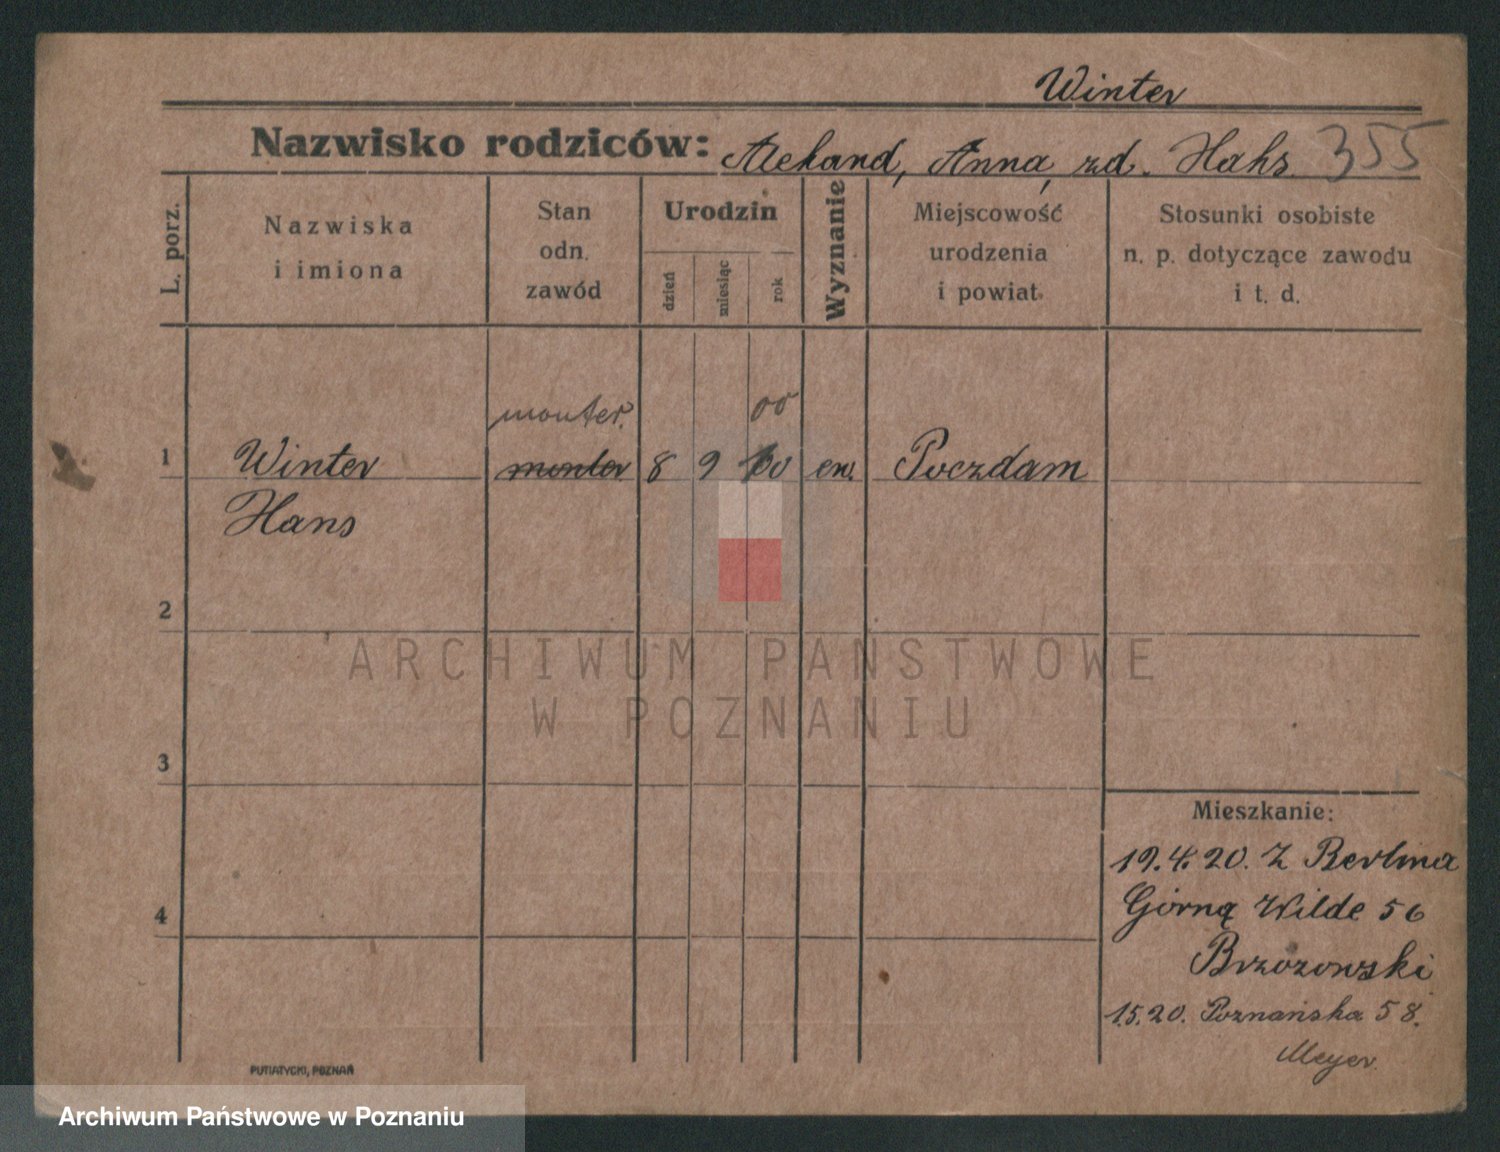 Winter
Nazwisko rodziców: Alekand, Anna, zd. Hahs. 355
L. porz.
Nazwiska
i imiona
Stan
odn.
zawód
Urodzin
dzień
miesiąc
rok
Wyznanie
Miejscowość
urodzenia
i powiat.
Stosunki osobiste
n. p. dotyczące zawodu
i t. d.
monter. 00
1 Winter monter 8 9 00 ew. Poczdam
Hans
2
ARCHIWUM PAŃSTWOWE
W POZNANIU
3
Mieszkanie:
19.4.20. Z Berlina
4
Górną Wilde 56
Brzozowski
1.5.20. Poznańska 58.
Meyer
PUTIATYCKI, POZNAŃ
Archiwum Państwowe w Poznaniu